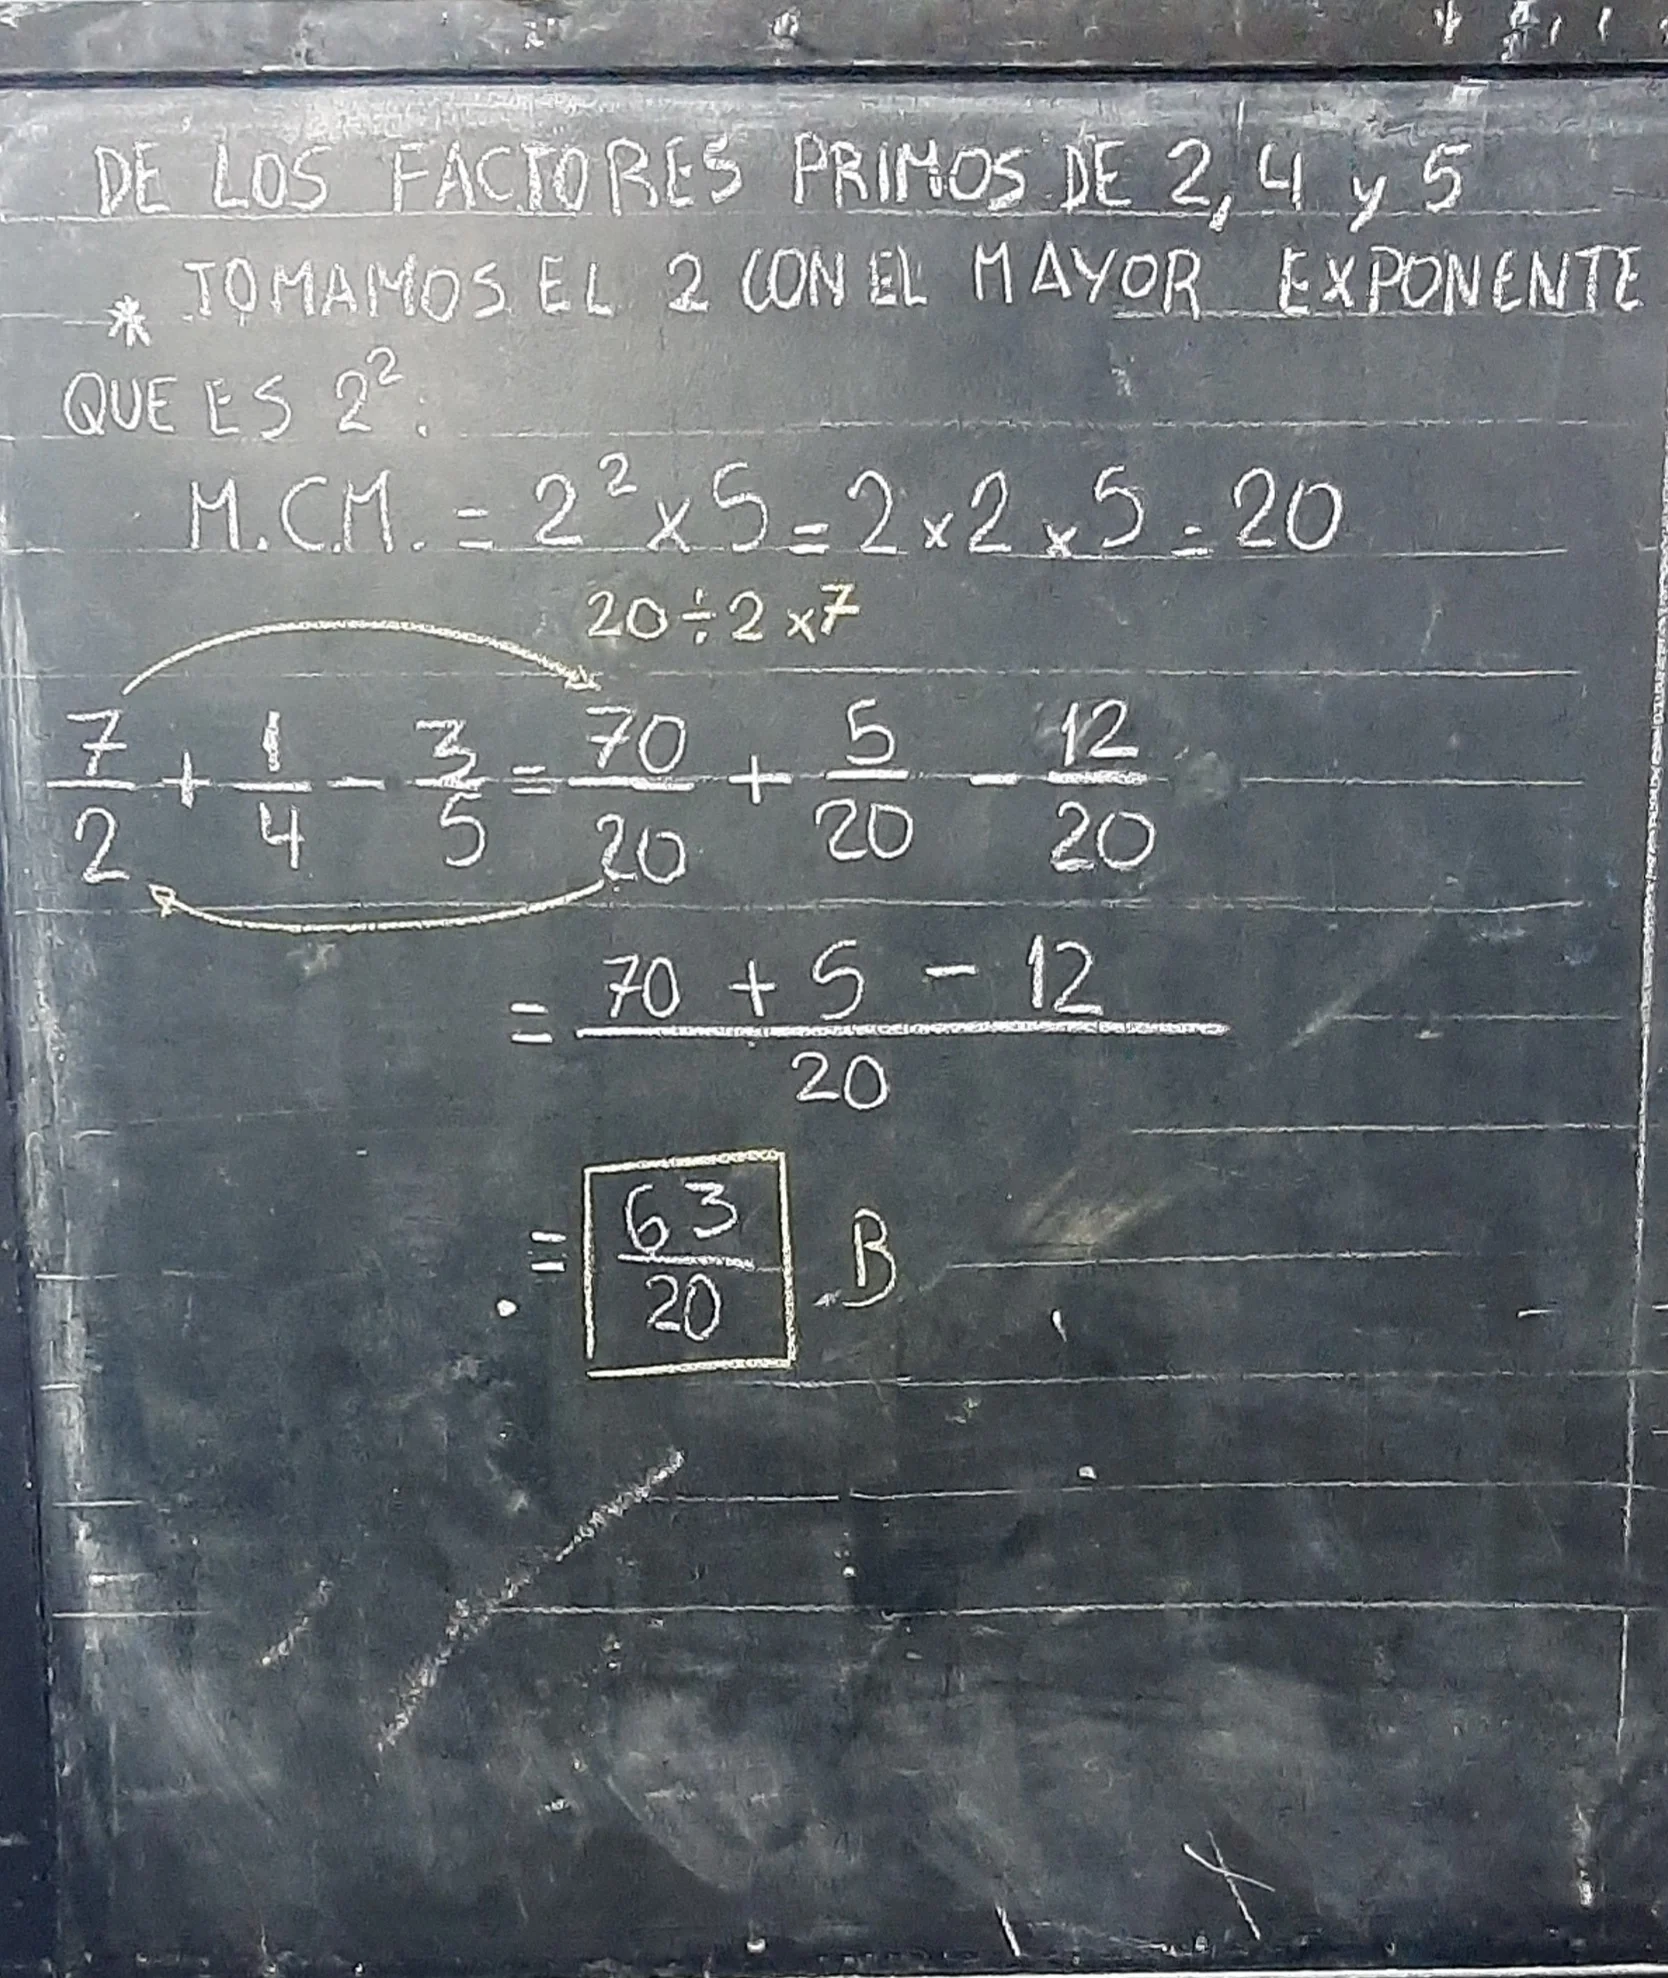 DE LOS FACTORES PRIMOS DE 2, 4 y 5
* TOMAMOS EL 2 CON EL MAYOR EXPONENTE
QUE ES 2².
M.C.M. = 2² x 5 = 2 x 2 x 5 = 20
20 ÷ 2 x 7
7/2 + 1/4 - 3/5 = 70/20 + 5/20 - 12/20
= (70 + 5 - 12)/20
= 63/20 B